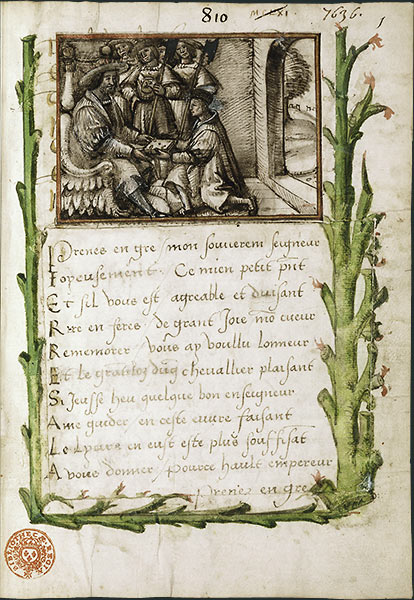 810 MCLXI. 7636. 1
Prenes en gre mon souverein seigneur
Ioyeusement. Ce mien petit pnt
Et sil vous est agreable et duisant
Rire en feres de grant Joie mo cueur
Rememorer vous ay voullu lonneur
Et le dung chevallier plaisant
Si Jeusse heu quelque bon enseigneur
A me guider en ceste euvre faisant
Le lyvre en eust este plus souffisat
A vous donner pource hault empereur
Prenes en gre
BIBLIOTHECÆ REGIÆ